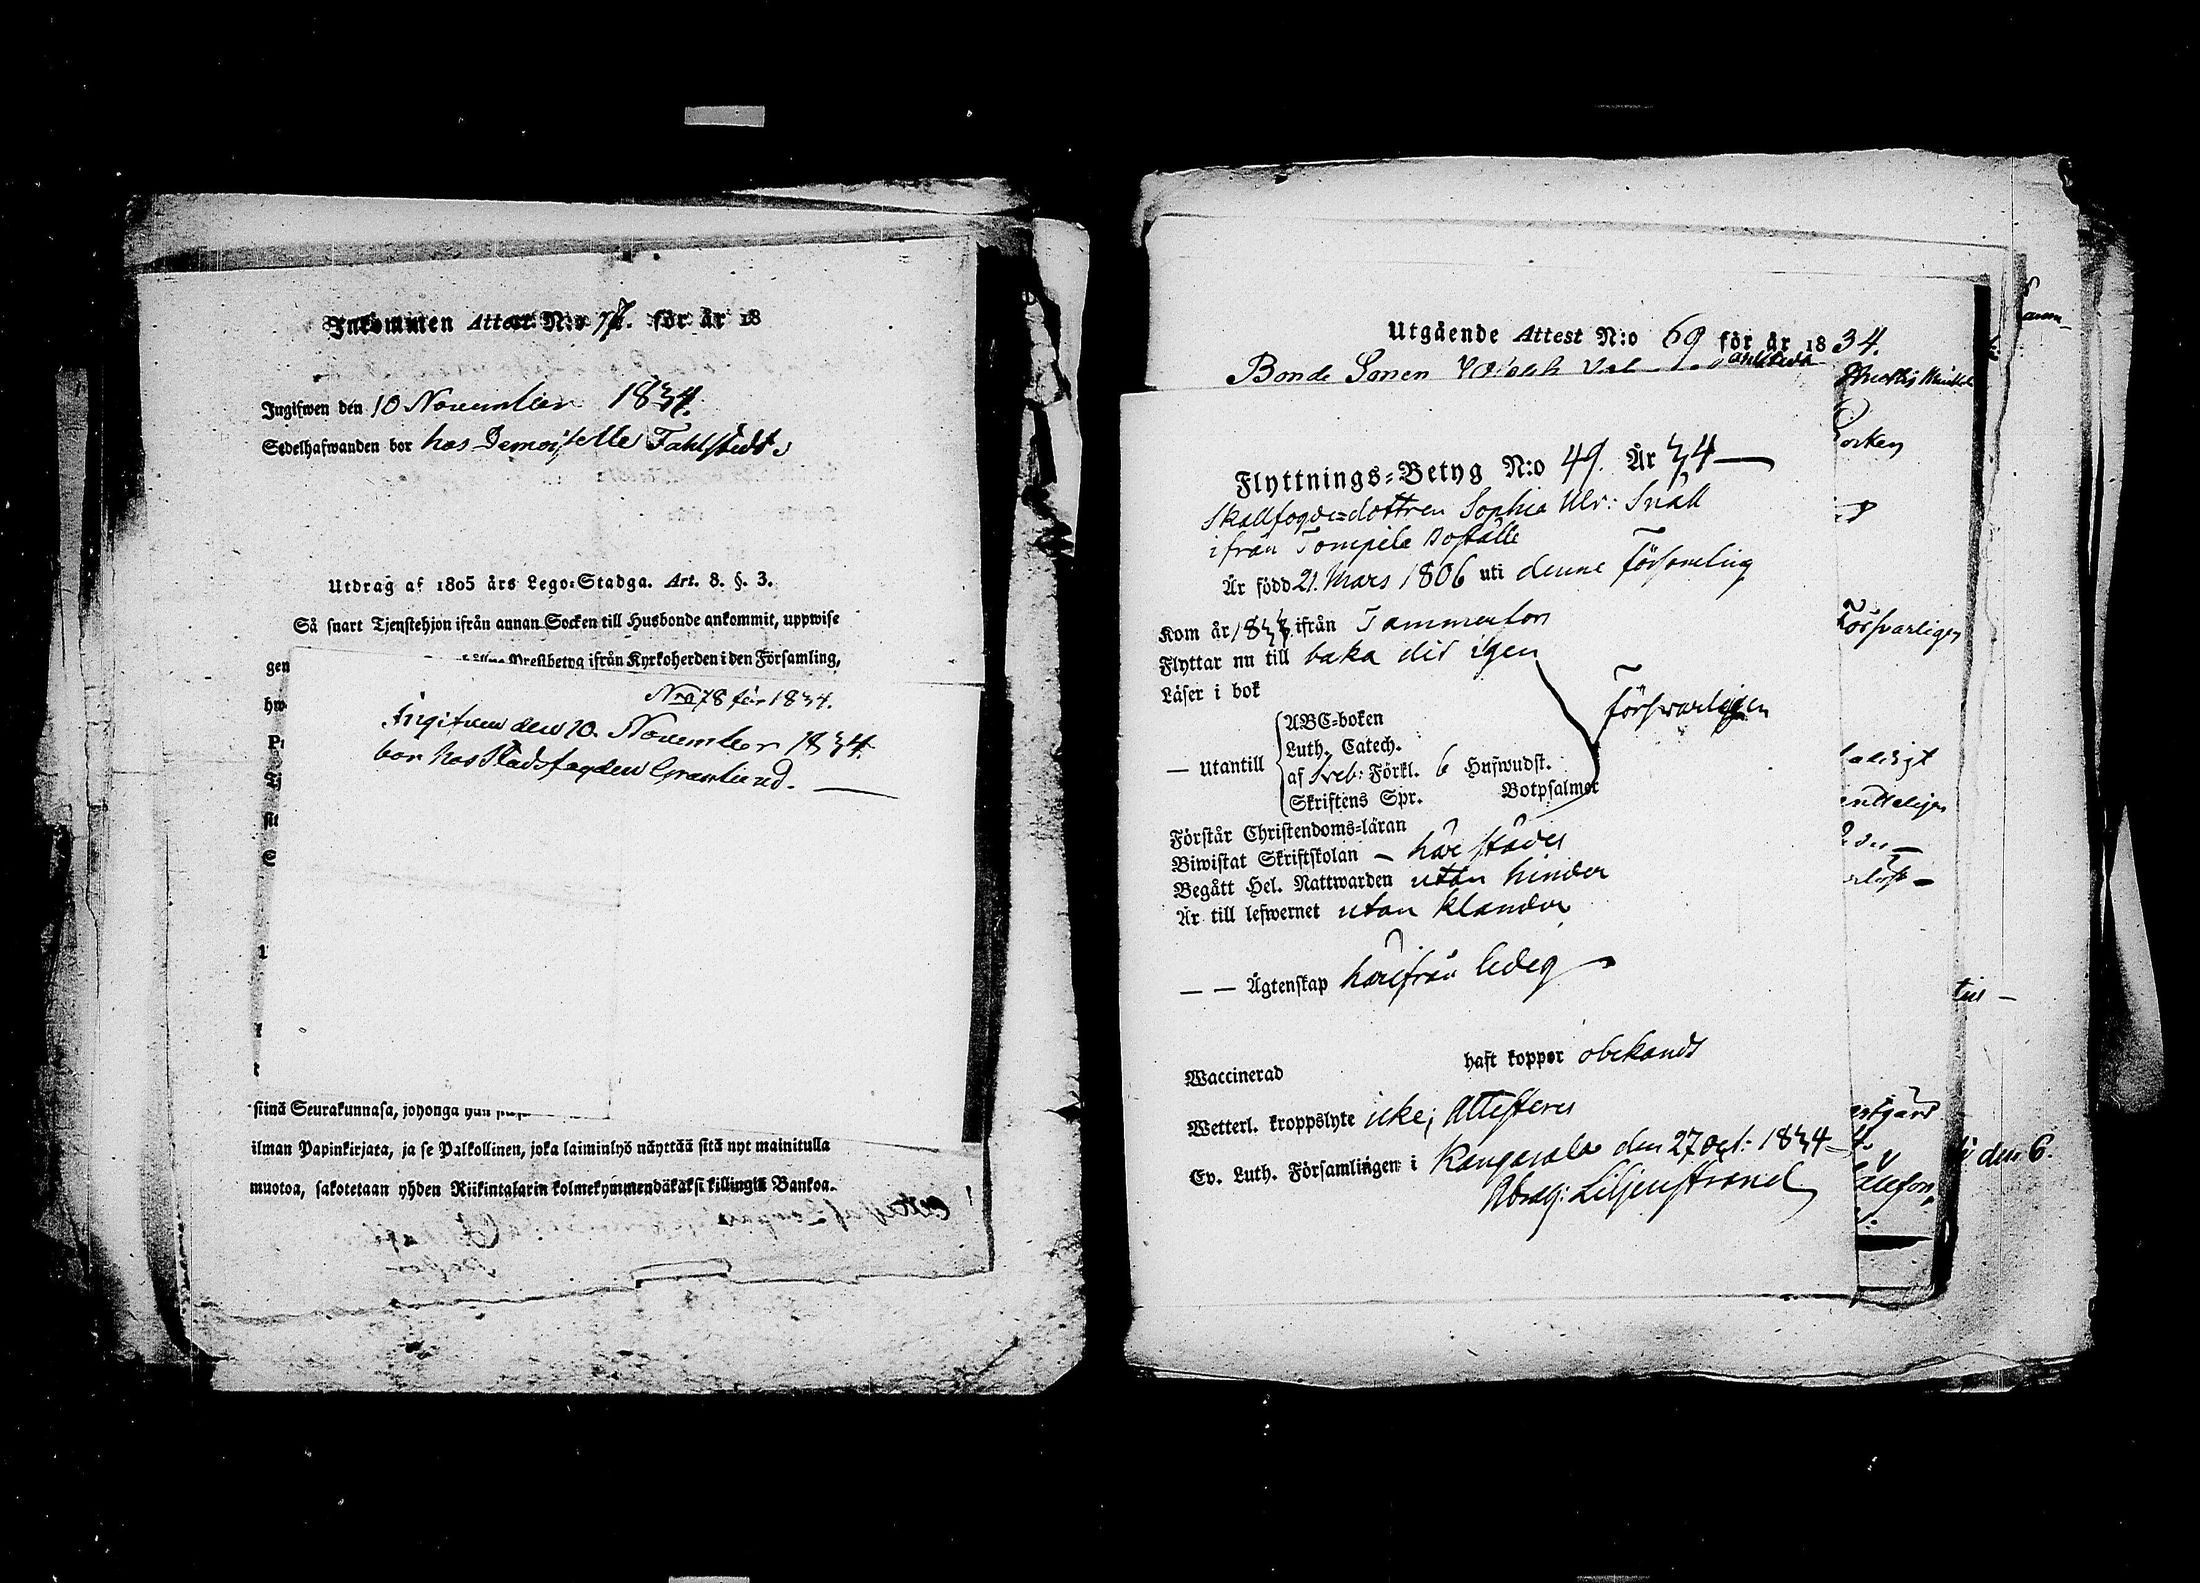 Inkommen Attest N:o 77. för år 18
Ingifwen den 10 November 1834.
Sedelhafwanden bor hos Demoiselle Fahlstedt
Utdrag af 1805 års Lego-Stadga. Art. 8. §. 3.
Så snart Tjenstehjon ifrån annan Socken till Husbonde ankommit, uppwise
gen Prestbetyg ifrån Kyrkoherden i den Församling,
Nro 78 för 1834.
Ingifwen den 10. November 1834.
bor hos Stadsfogden Granlund.
stinä Seurakunnasa, johonga hän
ilman Papinkirjata, ja se Palkollinen, joka laiminlyö näyttää sitä nyt mainitulla
muotoa, sakotetaan yhden Riikintalarin kolmekymmendäkaksi killingiä Bankoa.
Utgående Attest N:o 69 för år 1834.
Bonde Sonen
Flyttnings-Betyg N:o 49. År 34
Skallfogde-dottren Sophia Ulr: Snäll
ifrån Tompila Boställe
Är född 21. Mars 1806 uti denne Församling
Kom år 1833 ifrån Tammerfors
Flyttar nu till baka dit igen
Läser i bok
Försvarligen
— Utantill
ABC-boken
Luth. Catech.
af Sveb: Förkl. 6 Hufwudst.
Skriftens Spr. Botpsalmer
Förstår Christendoms-läran
Biwistat Skriftskolan — härstädes
Begått Hel. Nattwarden utan hinder
Är till lefwernet utan klander
— — Ägtenskap härifrån ledig
Waccinerad haft koppor obekandt
Wetterl. kroppslyte icke; Attesteras
Ev. Luth. Församlingen i Kangasala den 27 Oct: 1834
Abrah: Liljenstrand
Försvarligen
den 6.